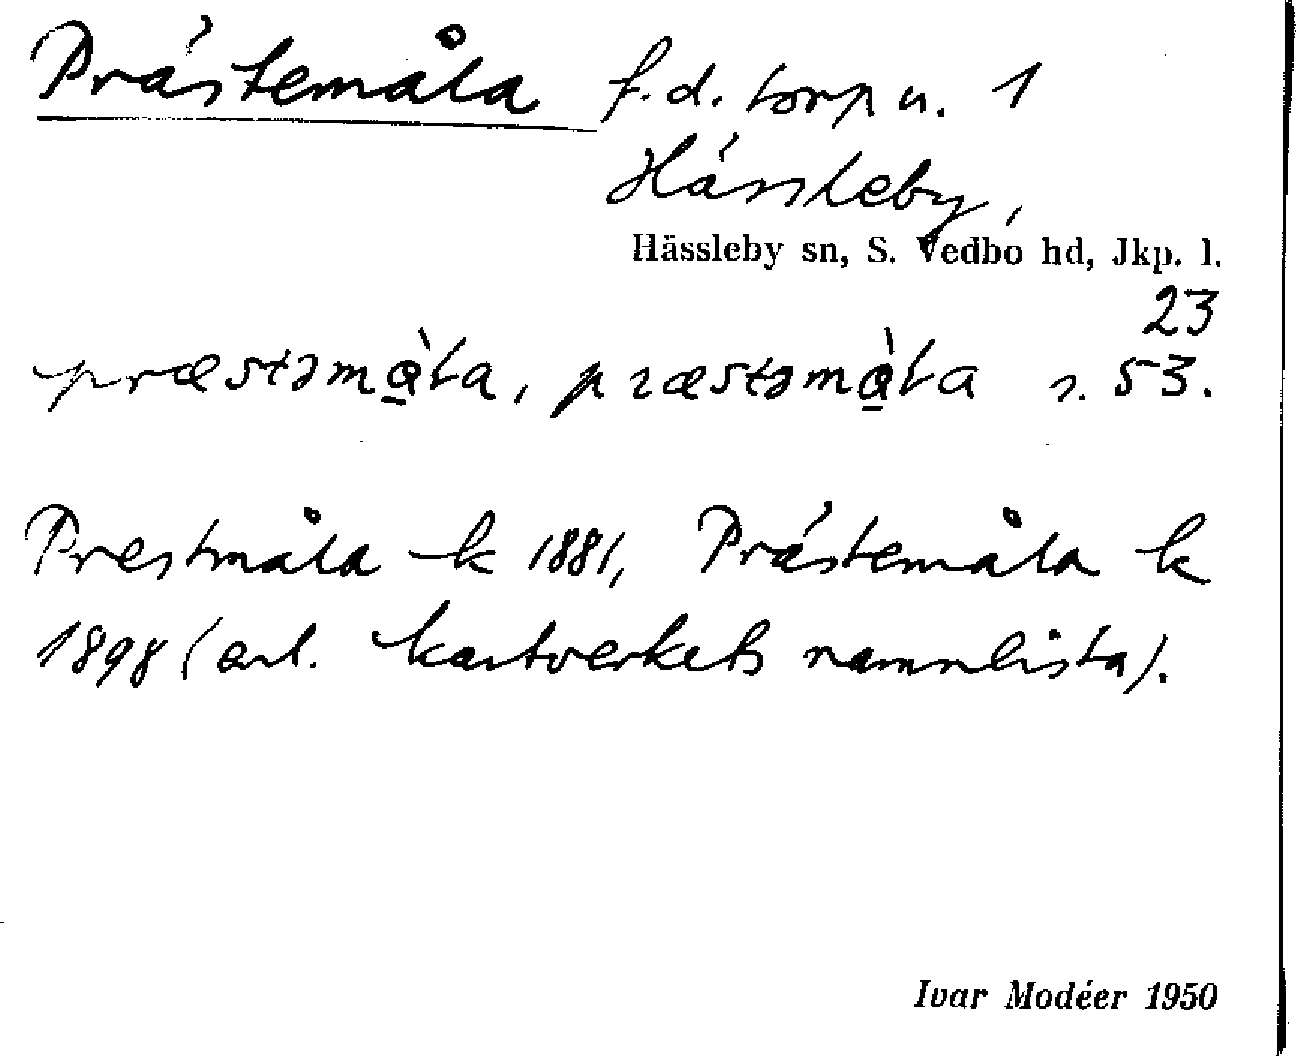 Prästemåla f.d. torp u. 1
Hässleby,
Hässleby sn, S. Vedbo hd, Jkp. l.
23
præstəmą̀la, præstəmą̀la s. 53.
Prestmåla k 1881, Prästemåla k
1898 (enl. kartverkets namnlista).
Ivar Modéer 1950